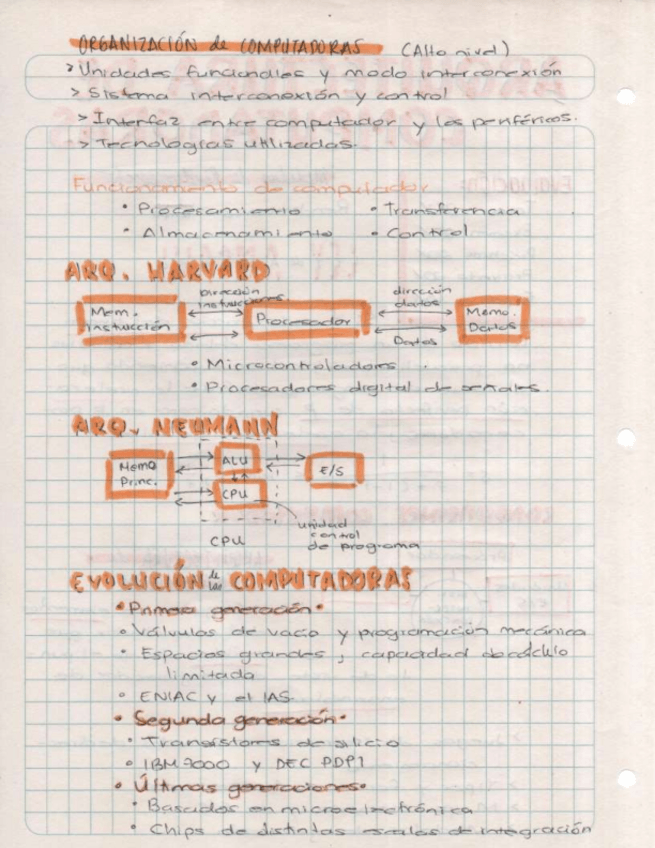 ORGANIZACIÓN de COMPUTADORAS (Alto nivel)
> Unidades funcionales y modo interconexión
> Sistema interconexión y control
> Interfaz entre computador y los periféricos.
> Tecnologías utilizadas.
Funcionamiento de computador
• Procesamiento • Transferencia
• Almacenamiento • Control
ARQ. HARVARD
Mem. Instrucción
Dirección instrucciones
Procesador
dirección datos
Datos
Memo. Datos
• Microcontroladores
• Procesadores digital de señales.
ARQ. NEUMANN
Memo Princ.
ALU
CPU
E/S
CPU
unidad
control
de programa
EVOLUCIÓN de las COMPUTADORAS
• Primera generación •
• Válvulas de vacío y programación mecánica
• Espacios grandes, capacidad de cálculo
limitada
• ENIAC y el IAS.
• Segunda generación •
• Transistores de silicio
• IBM 7000 y DEC PDP1
• Últimas generaciones •
• Basados en microelectrónica
• Chips de distintas escalas de integración